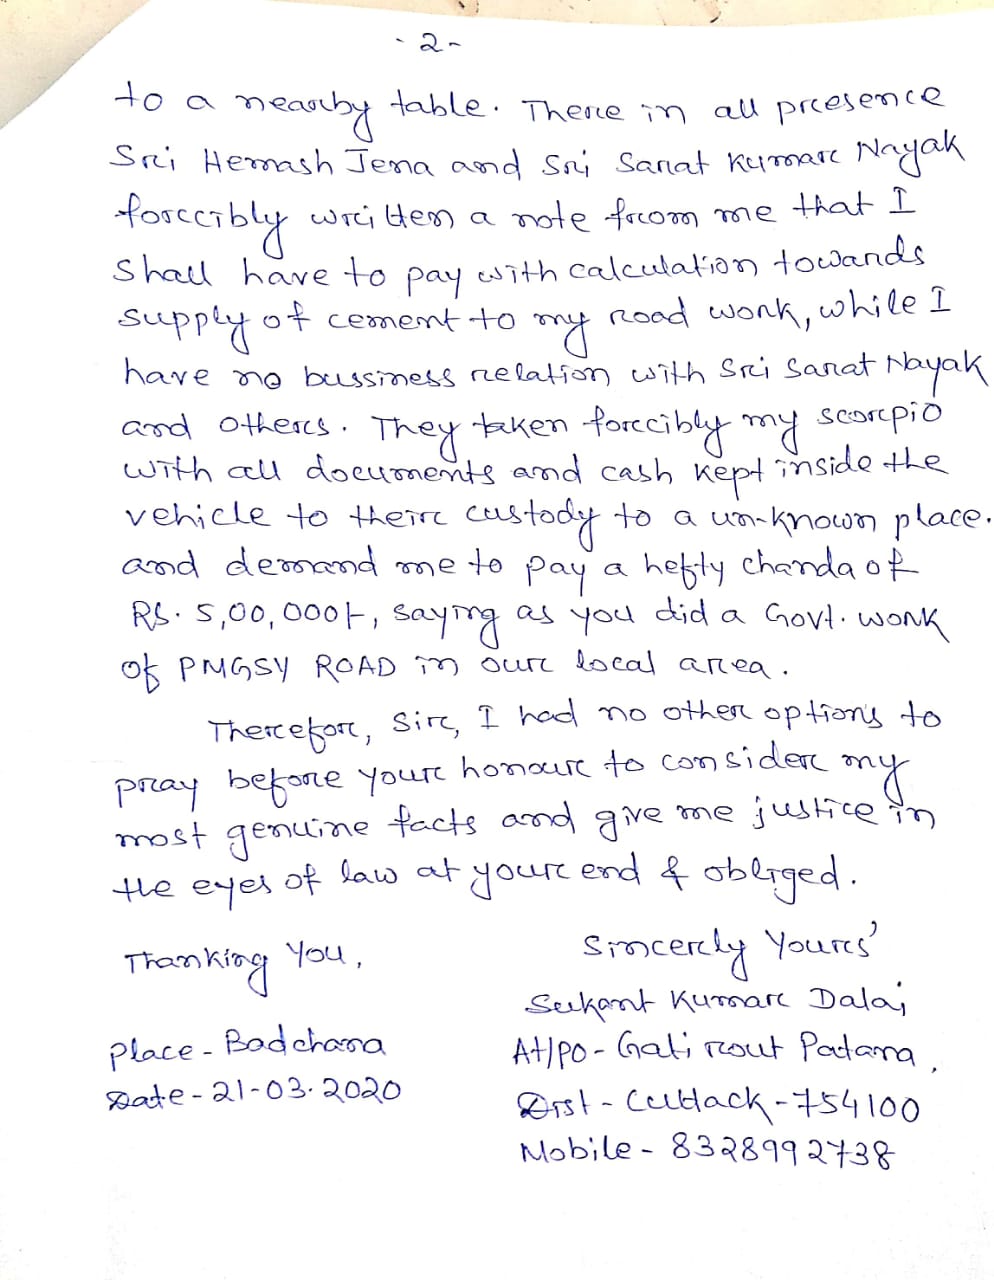 - 2 -
to a nearby table. There in all presence
Sri Hemash Jena and Sri Sarat Kumar Nayak
forccibly written a note from me that I
Shall have to pay with calculation towards
supply of cement to my road work, while I
have no bussiness relation with Sri Sarat Nayak
and others. They taken forccibly my scorpio
with all documents and cash kept inside the
vehicle to their custody to a un-known place.
and demand me to pay a hefty chanda of
RS. 5,00,000/-, saying as you did a Govt. work
of PMGSY ROAD in our local area.
Therefor, Sir, I had no other options to
pray before your honour to consider my
most genuine facts and give me justice in
the eyes of law at your end & obliged.
Thanking You,
Sincerly Yours'
Sukant Kumar Dalai
Place - Badchana
At/PO - Gatirout Patana,
Date - 21-03.2020
Dist - Cuttack - 754100
Mobile - 8328992738